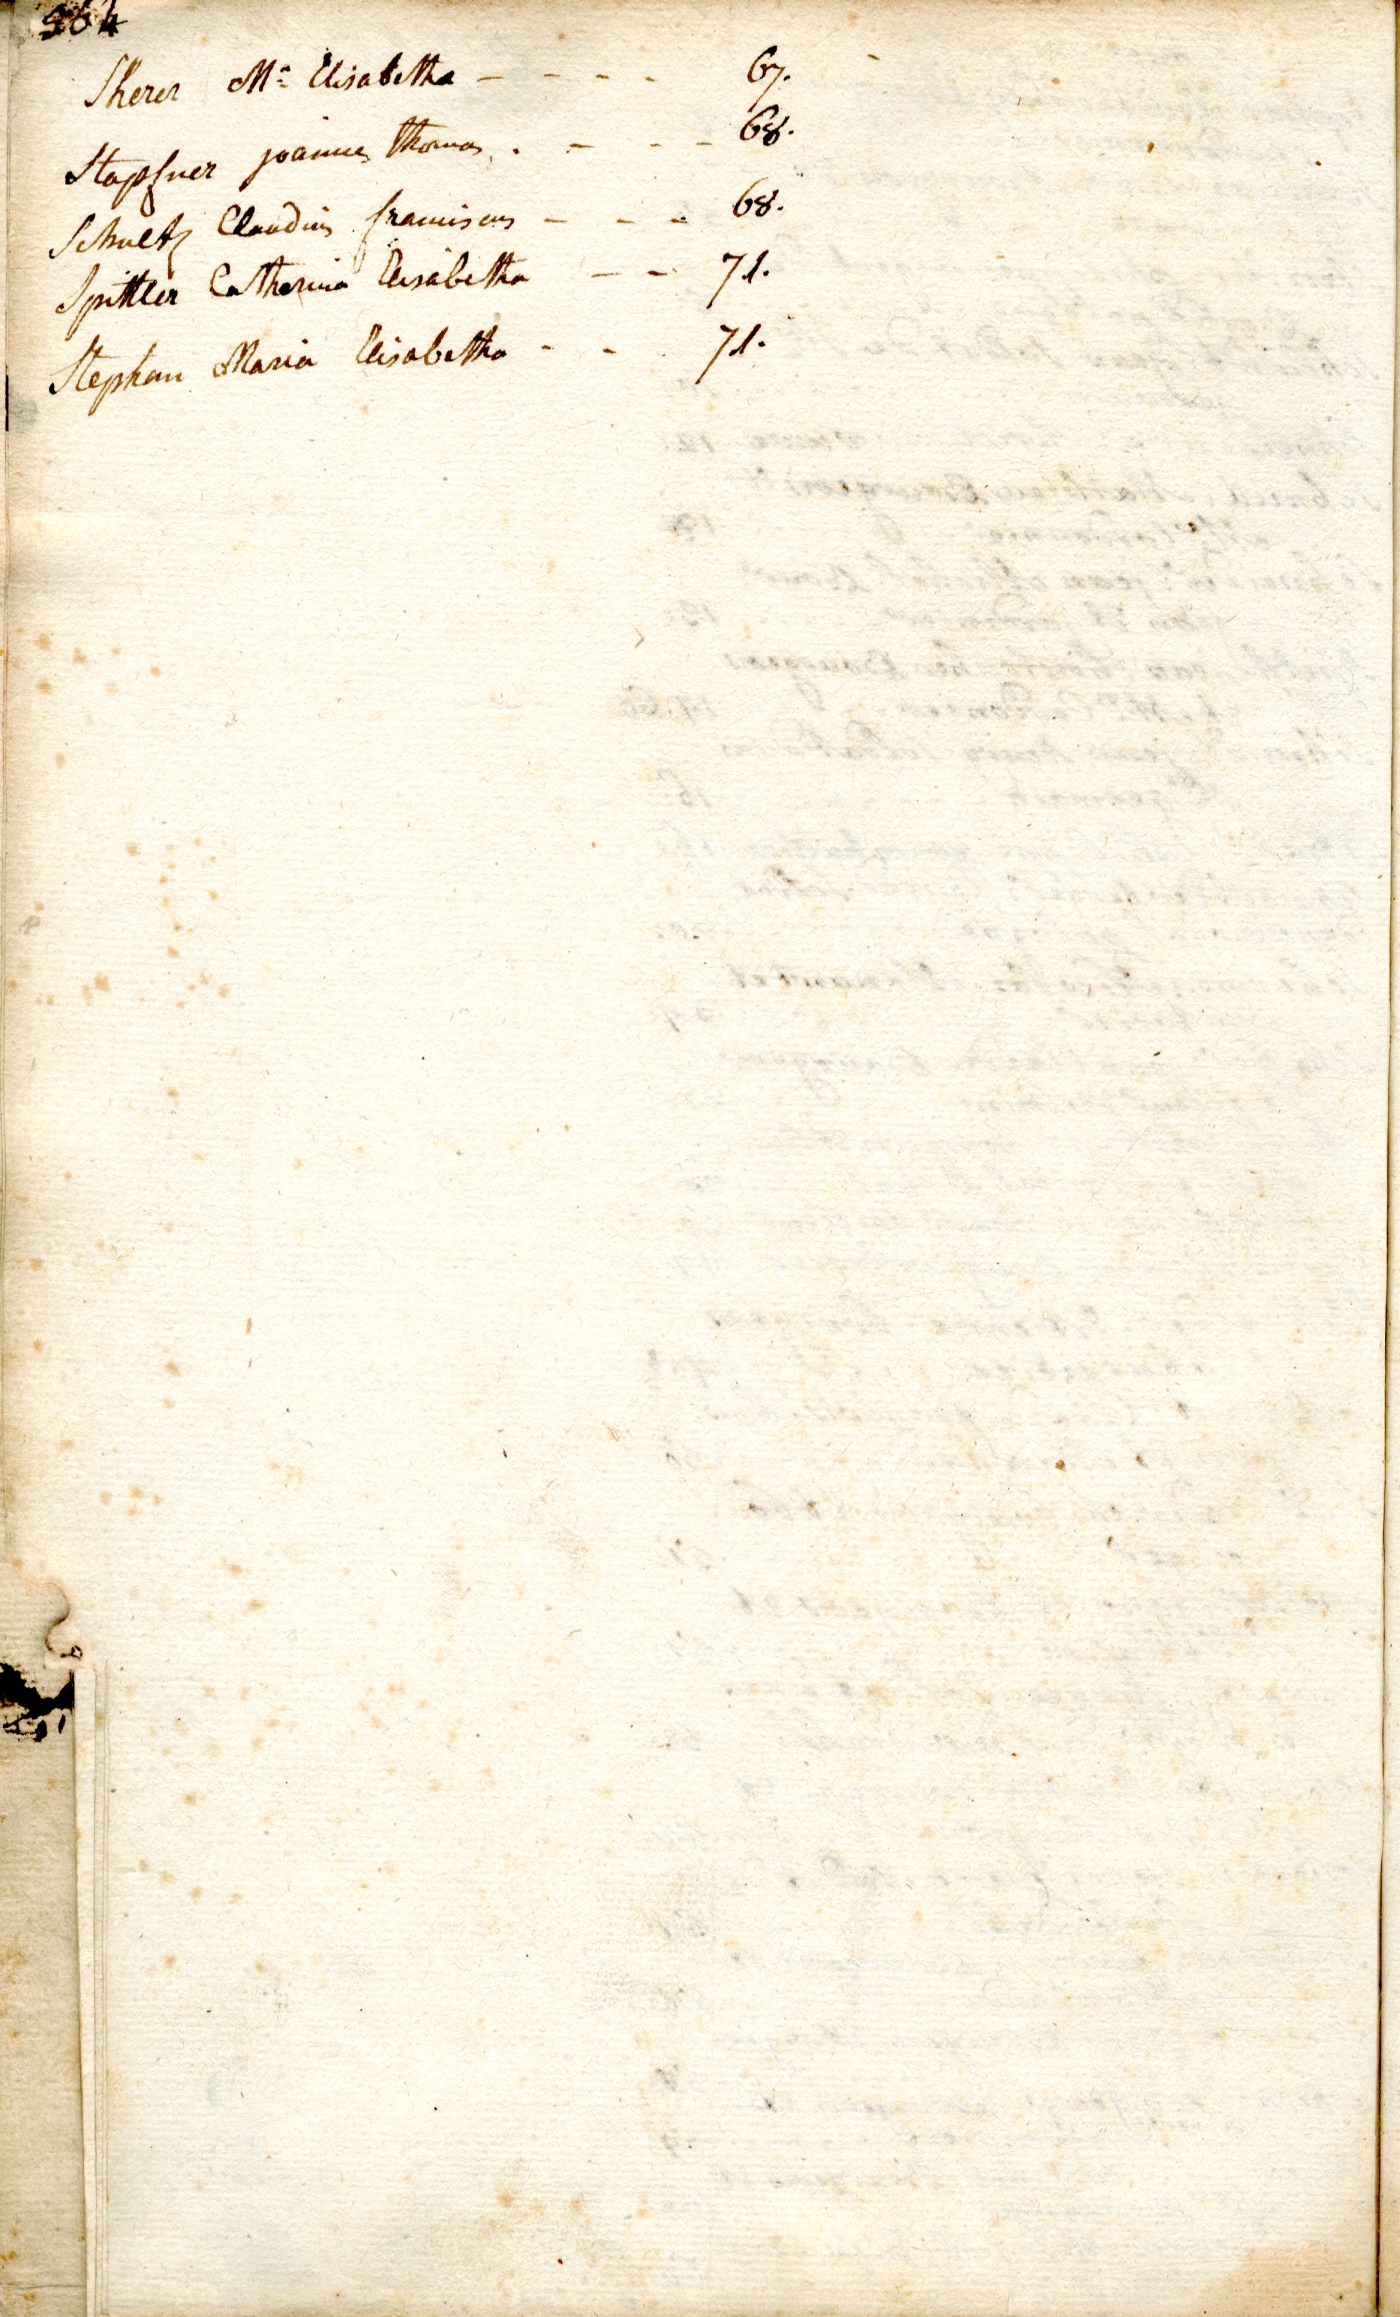 564
Sherer Mª Elisabetha - - - - 67.
Stapfner joannes Thomas . - - - 68.
Schultz Claudius franciscus - - - 68.
Spittler Catherina Elisabetha - - 71.
Stephan Maria Elisabetha - - . 71.